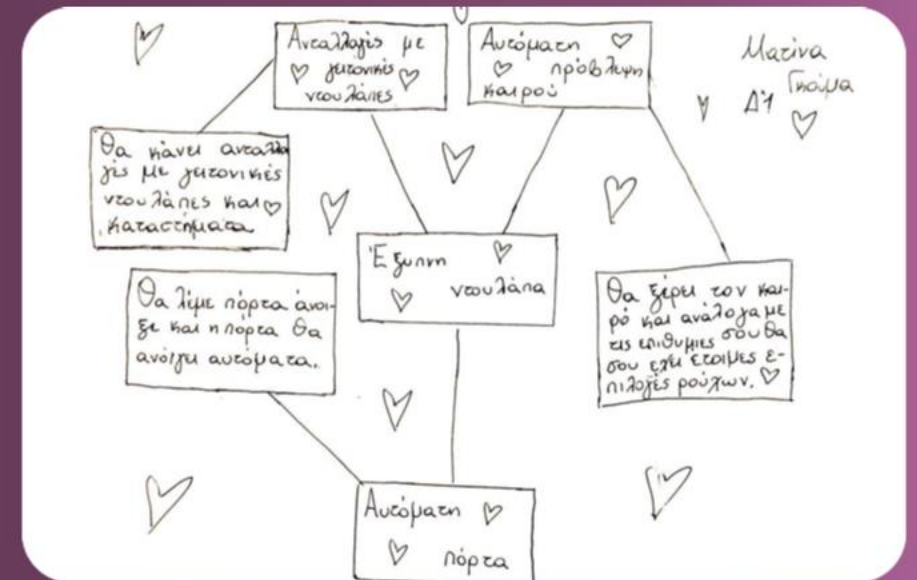 Ανταλλαγές με
γειτονικές
ντουλάπες
Αυτόματη
πρόβλεψη
καιρού
Ματίνα
Γκόμα
Δ'1
Θα κάνει ανταλλα
γές με γειτονικές
ντουλάπες και
καταστήματα
Έξυπνη
ντουλάπα
Θα λέμε πόρτα άνοι-
ξε και η πόρτα θα
ανοίγει αυτόματα.
Θα ξέρει τον και-
ρό και ανάλογα με
τις επιθυμίες σου θα
σου έχει έτοιμες ε-
πιλογές ρούχων.
Αυτόματη
πόρτα